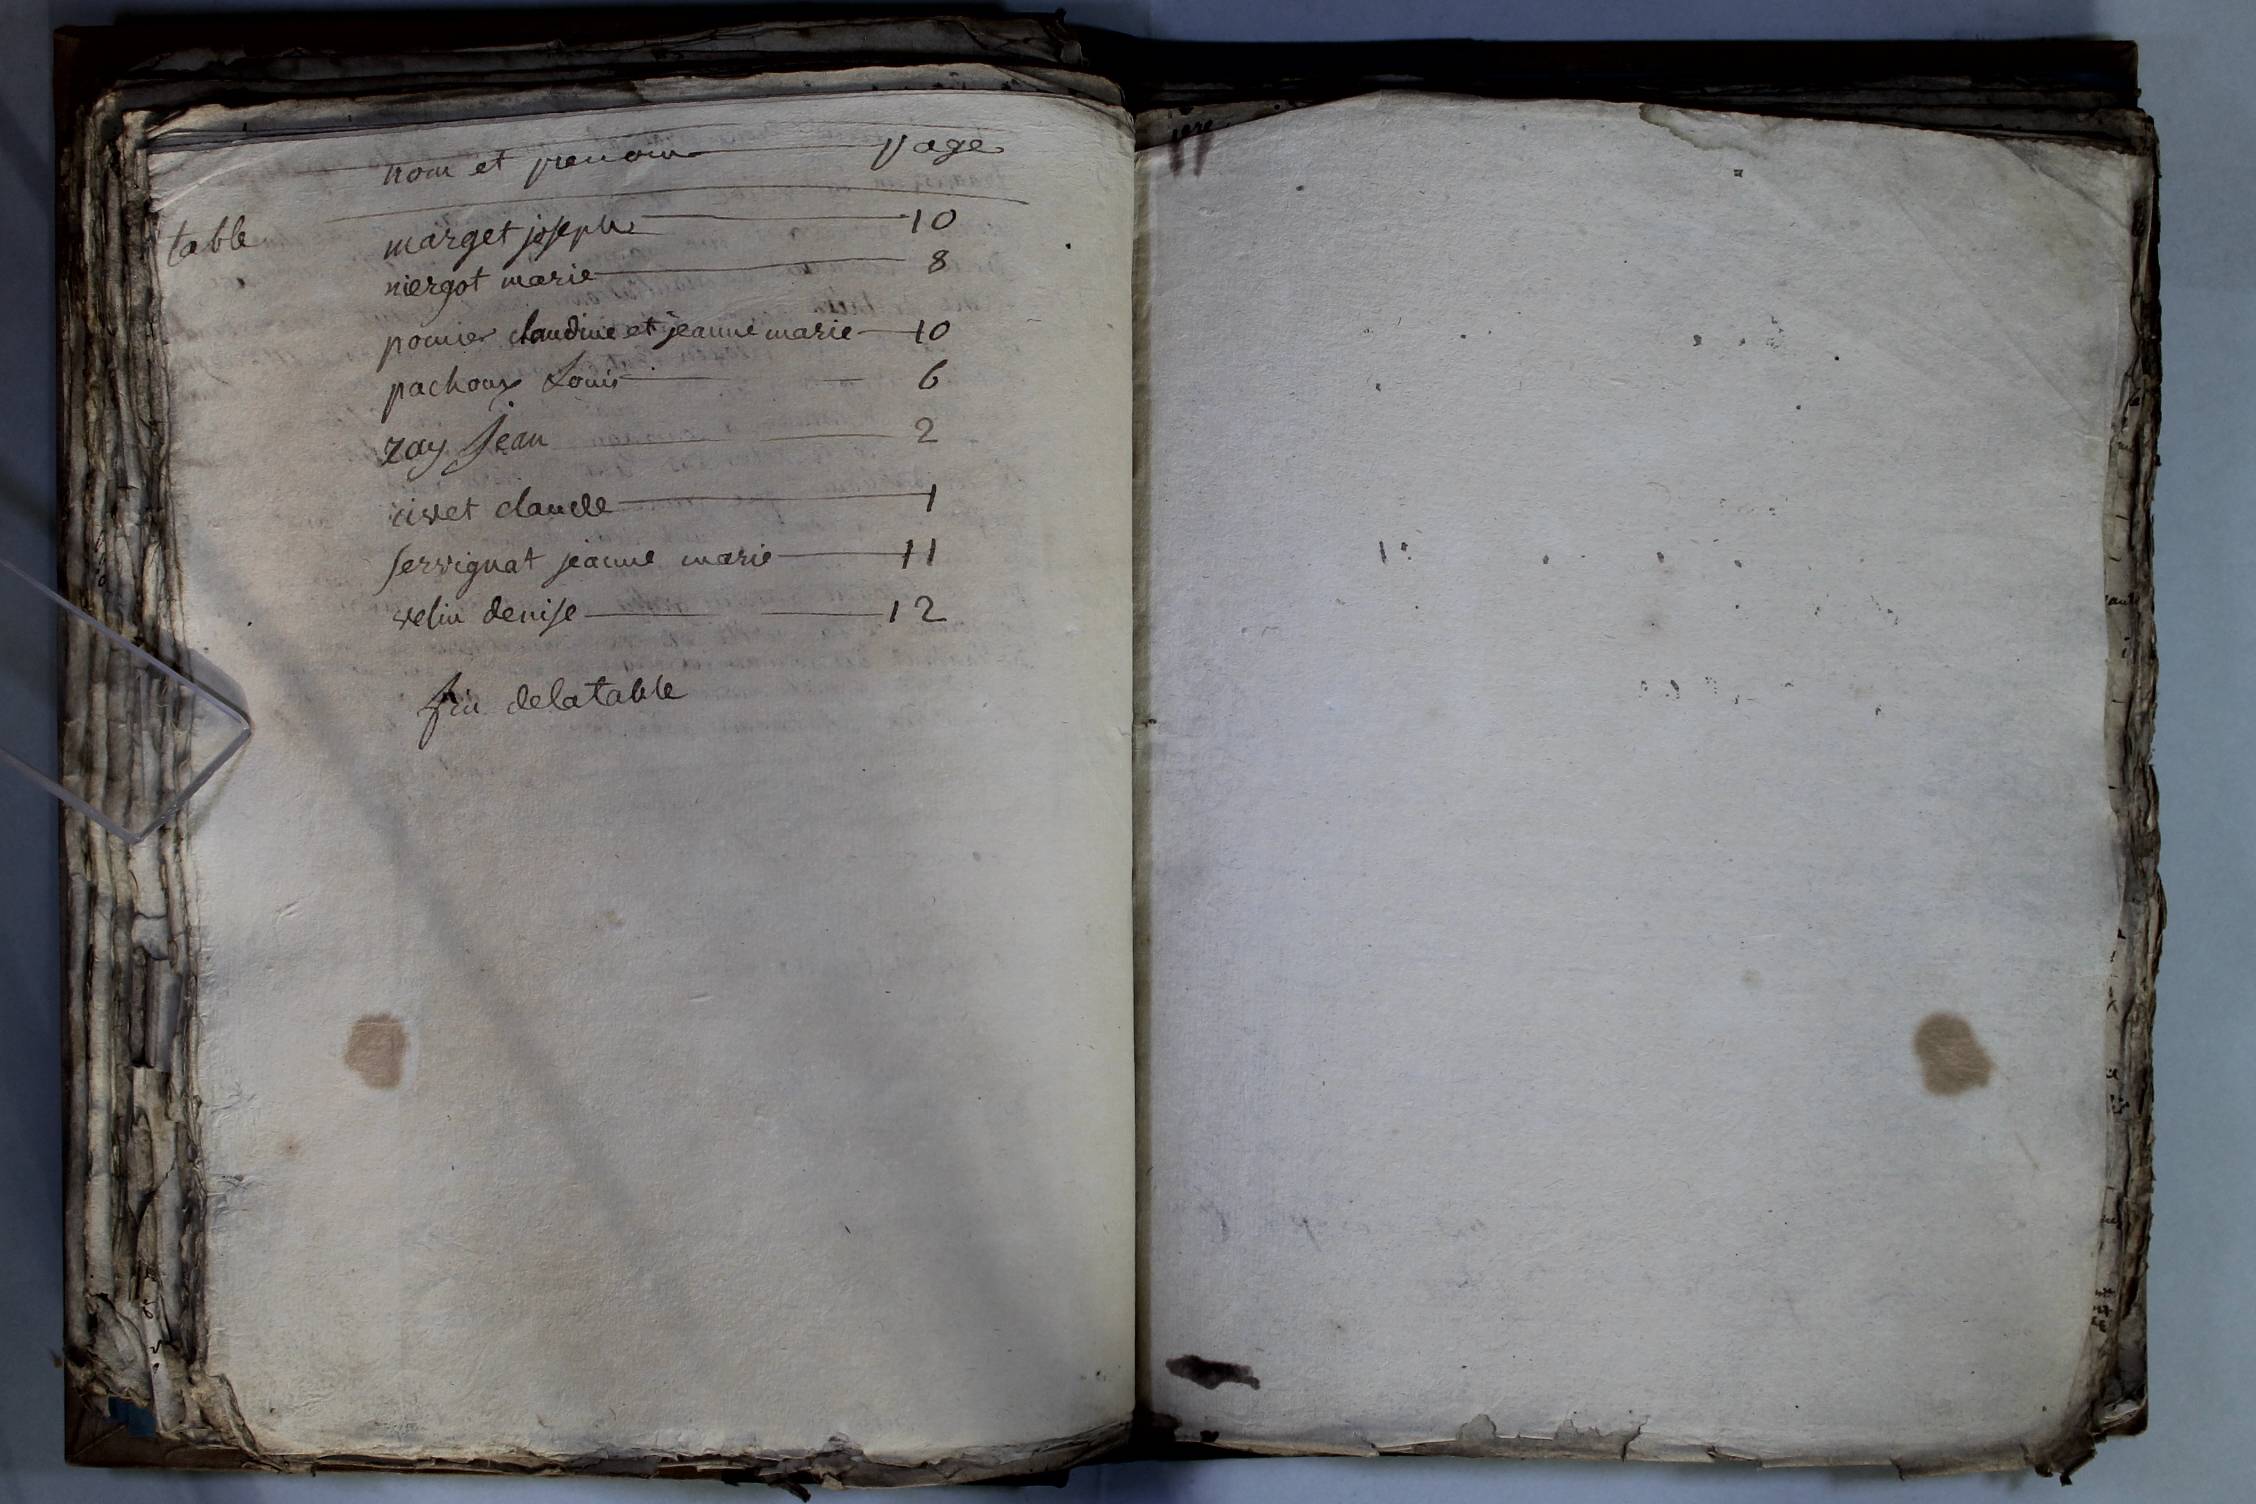 nom et prenom page
table
marget joseph 10
niergot marie 8
pomier claudine et jeanne marie 10
pachoux Louis 6
ray Jean 2
rivet claude 1
servignat jeanne marie 11
velin denise 12
fin delatable